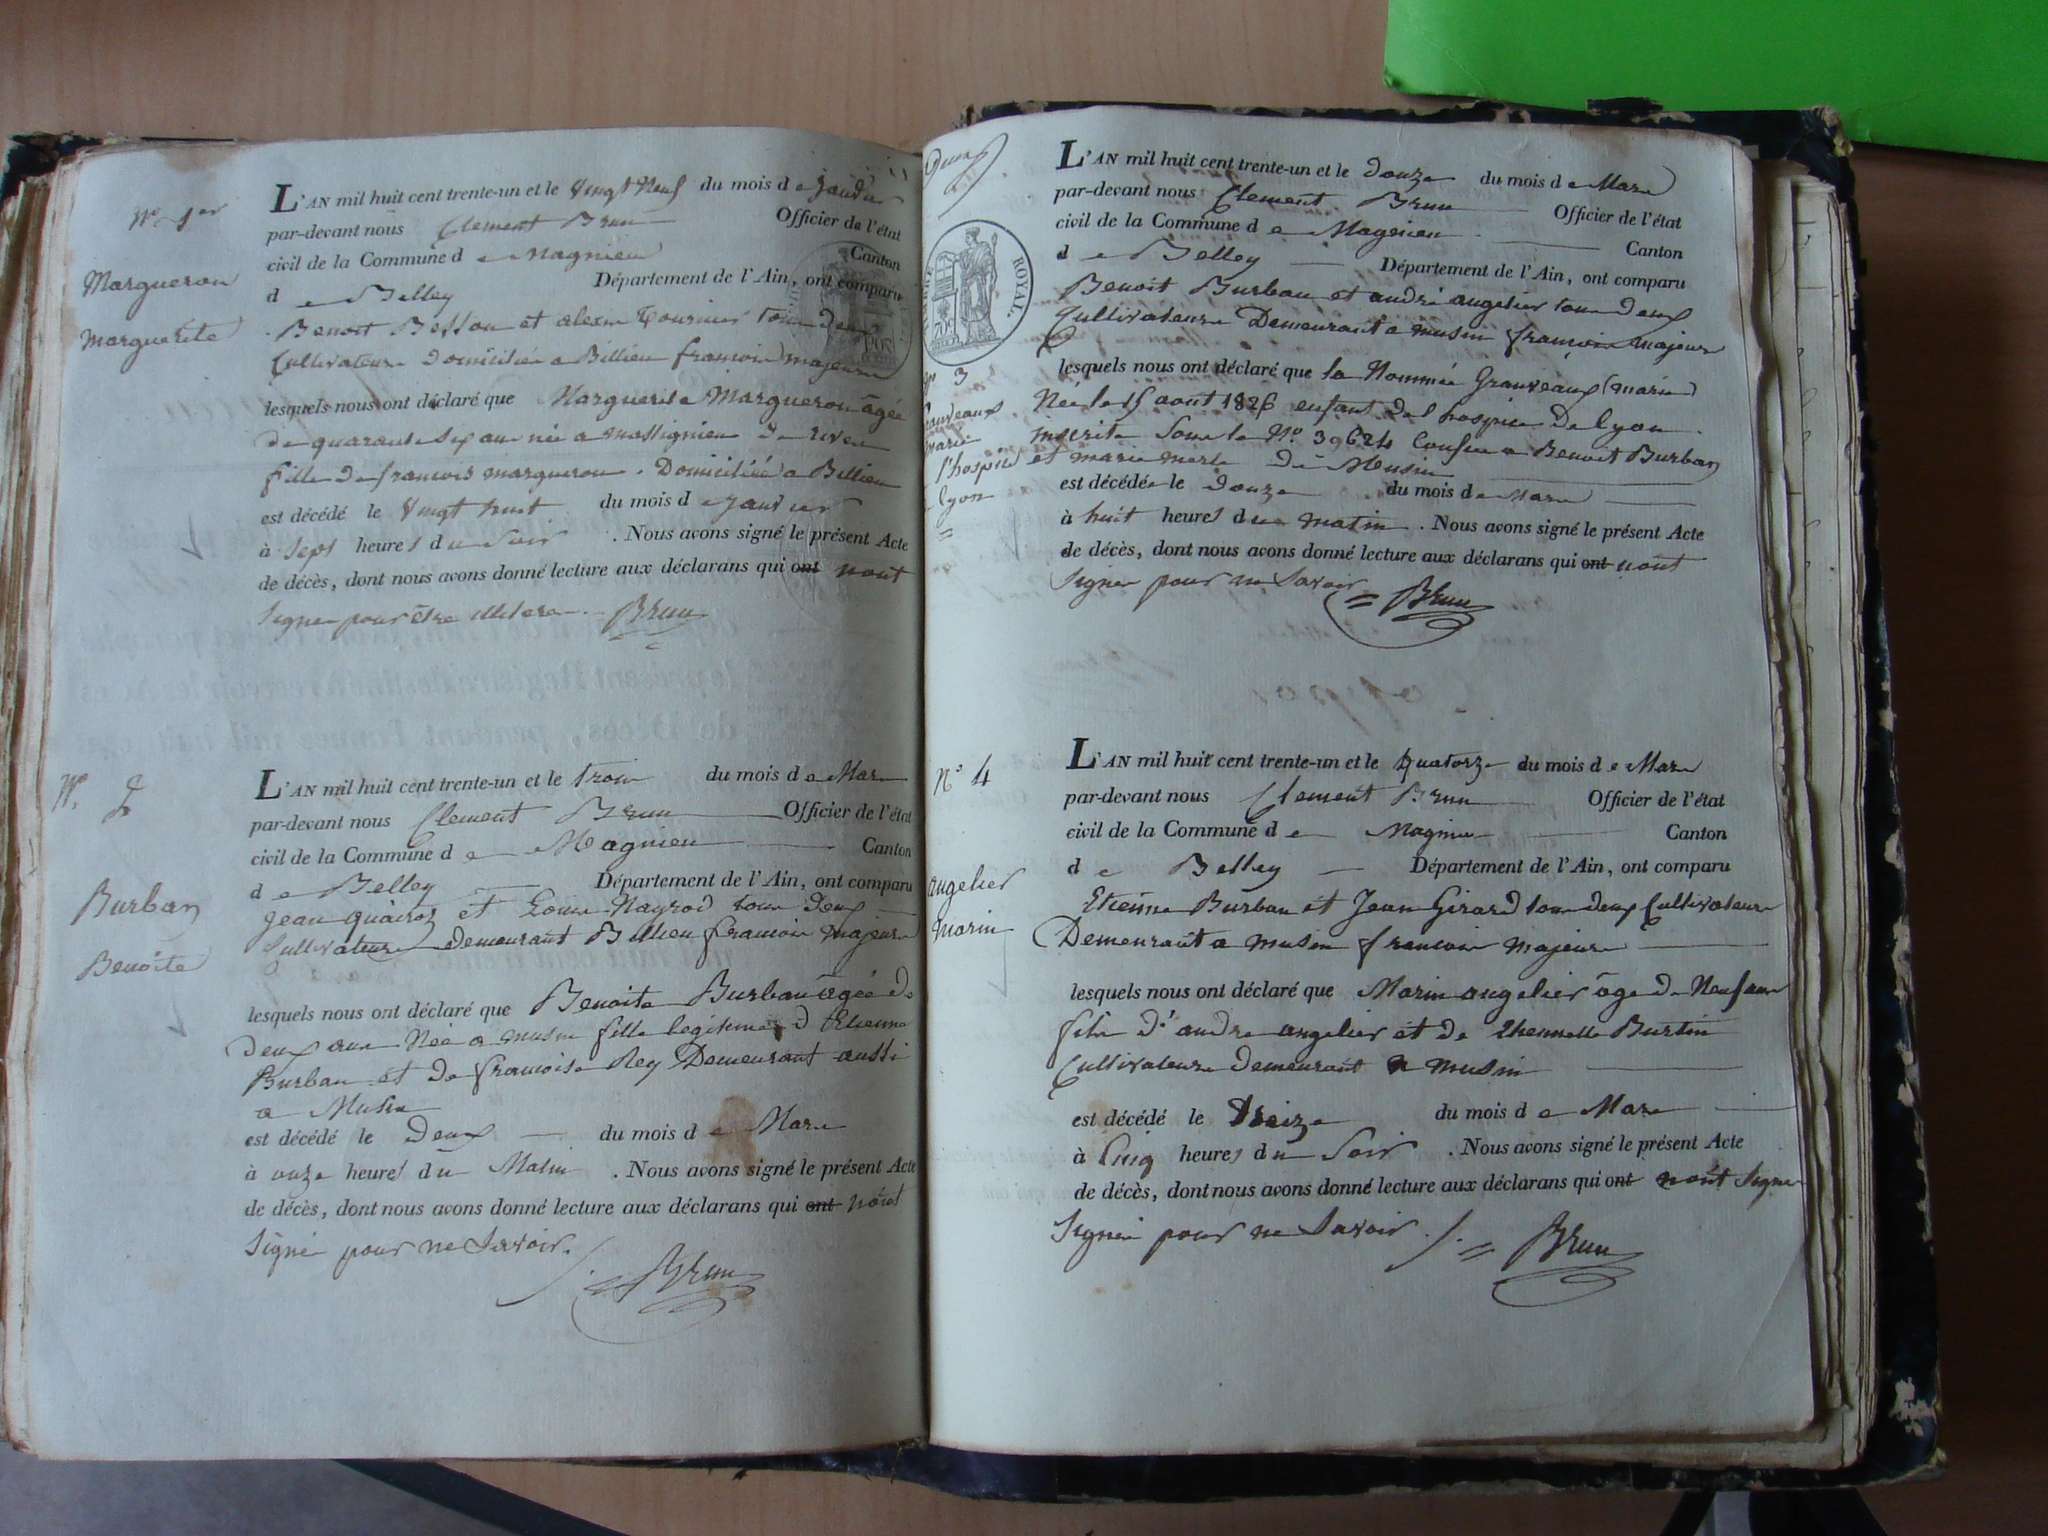 N.° 1er
Margueron
Marguerite
L'AN mil huit cent trente-un et le vingt Neuf du mois de Janvier
par-devant nous Clement Brun Officier de l'état
civil de la Commune de Magnieu Canton
de Belley Département de l'Ain, ont comparu
Benoit Besson et alexis tournier tous deux
Cultivateurs domiciliés a Billieu francois majeurs
lesquels nous ont déclaré que Marguerite Margueron âgée
De quarante six ans née a massignieu de rives
fille de francois margueron. Domiciliée a Billieu
est décédé le vingt huit du mois de janvier
à sept heures du Soir. Nous avons signé le présent Acte
de décès, dont nous avons donné lecture aux déclarans qui ont nont
Signer pour être illitere. Brun
N.° 2
Burban
Benoite
L'AN mil huit cent trente-un et le trois du mois de Mars
par-devant nous Clement Brun Officier de l'état
civil de la Commune de Magnieu Canton
de Belley Département de l'Ain, ont comparu
Jean et Louis tous deux
Cultivateurs demeurant Billieu francois majeurs
lesquels nous ont déclaré que Benoite Burban âgée de
deux ans Née a musin fille legitime d'Etienne
Burban et de francoise Rey Demeurant aussi
a Musin
est décédé le Deux du mois de Mars
à onze heures du Matin. Nous avons signé le présent Acte
de décès, dont nous avons donné lecture aux déclarans qui ont nont
Signé pour ne Savoir. Brun
Deux
TIMBRE ROYAL
N° 3
Grauveaux
marie
l'hospice
lyon
L'AN mil huit cent trente-un et le douze du mois de Mars
par-devant nous Clement Brun Officier de l'état
civil de la Commune de Magnieu Canton
de Belley Département de l'Ain, ont comparu
Benoit Burban et andré angelier tous deux
Cultivateurs Demeurant a musin francois majeurs
lesquels nous ont déclaré que la Nommée Grauveaux (marie)
Née le 15 aout 1826 enfant de l'hospice De lyon
inscrite Sous le N° 39624 Confiée a Benoit Burban
et marie merle de Musin
est décédée le douze du mois de Mars
à huit heures du matin. Nous avons signé le présent Acte
de décès, dont nous avons donné lecture aux déclarans qui ont nont
Signer pour ne Savoir = Brun
N° 4
angelier
Marin
L'AN mil huit cent trente-un et le quatorze du mois de Mars
par-devant nous Clement Brun Officier de l'état
civil de la Commune de Magnieu Canton
de Belley Département de l'Ain, ont comparu
Etienne Burban et Jean Girard tous deux Cultivateurs
Demeurant a musin francois majeurs
lesquels nous ont déclaré que Marin angelier âge de Neuf ans
fils d'andre angelier et de Burtin
Cultivateurs demeurant a musin
est décédé le treize du mois de Mars
à Cinq heures du Soir. Nous avons signé le présent Acte
de décès, dont nous avons donné lecture aux déclarans qui ont nont Signe
Signé pour ne Savoir. = Brun